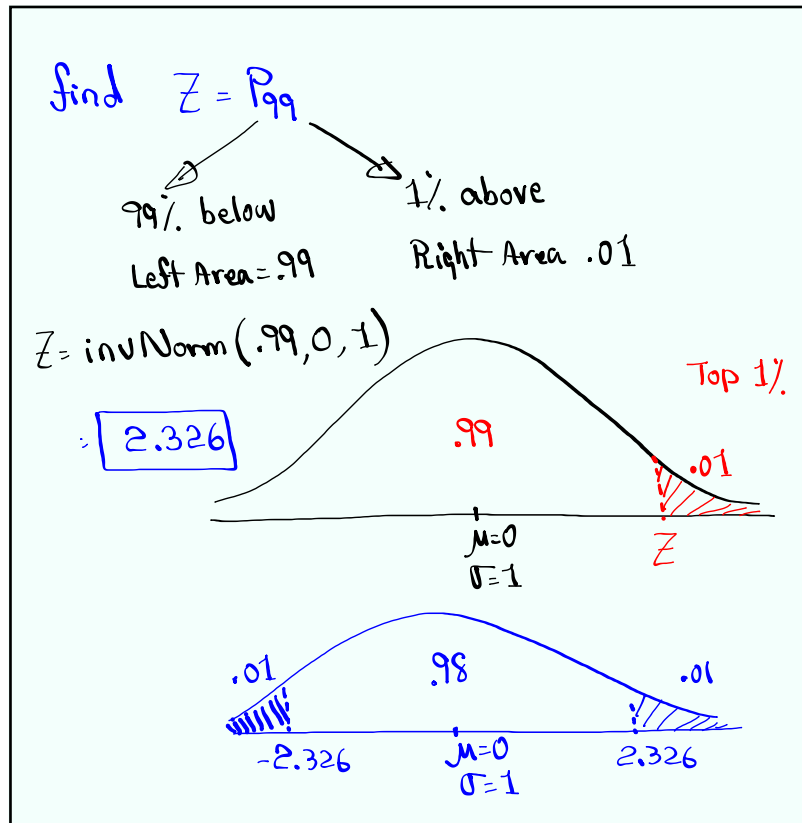 find Z = P₉₉
99% below
1% above
Left Area = .99
Right Area .01
Z = invNorm(.99, 0, 1)
= 2.326
Top 1%
.99
.01
μ=0
σ=1
Z
.01
.98
.01
-2.326
μ=0
2.326
σ=1